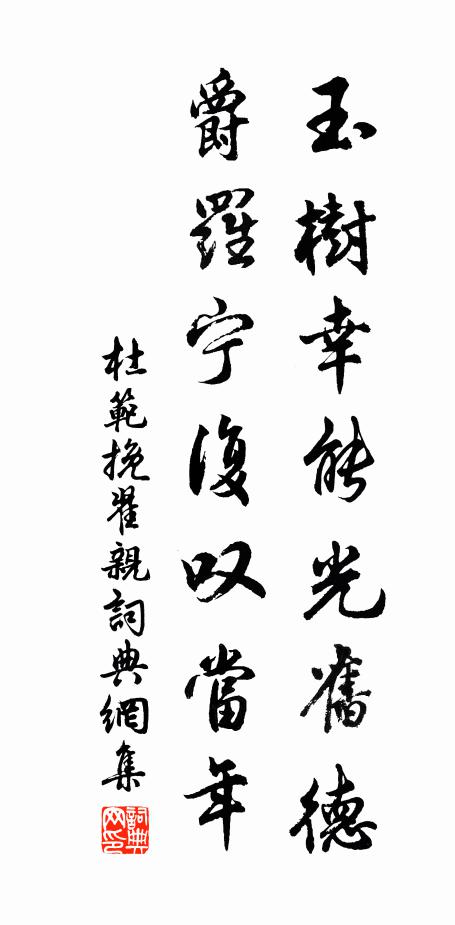 玉樹幸能光舊德
爵羅宁復叹當年
杜範挽翟親詞典網集
詞典網印